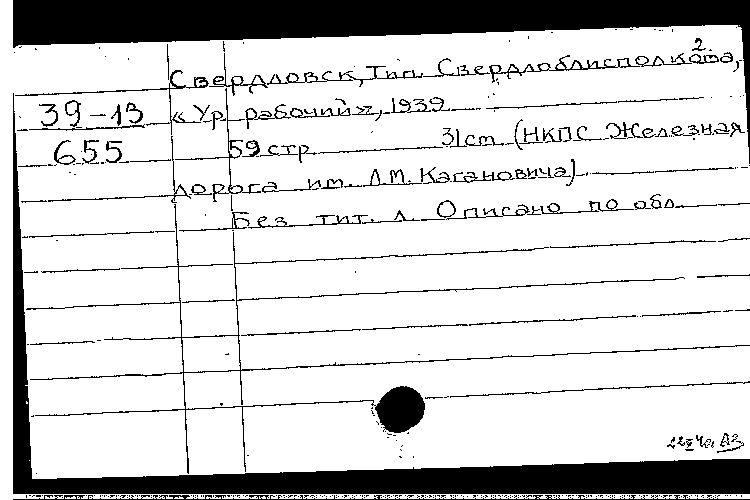 2.
Свердловск, Тип. Свердлоблисполкома,
39-13 «Ур. рабочий», 1939
655 59 стр 31 см (НКПС Железная
дорога им. Л.М. Кагановича)
Без тит. л. Описано по обл.